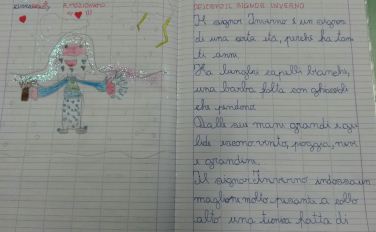 DESCRIVO IL SIGNOR INVERNO
Il signor Inverno è un signore
di una certa età, perché ha tan
ti anni.
Ha lunghi capelli bianchi,
una barba folta con ghiaccioli
che pendono.
Dalle sue mani grandi e ge
lide escono vento, pioggia, neve
e grandine.
Il signor Inverno indossa un
maglione molto pesante a collo
alto una tunica fatta di